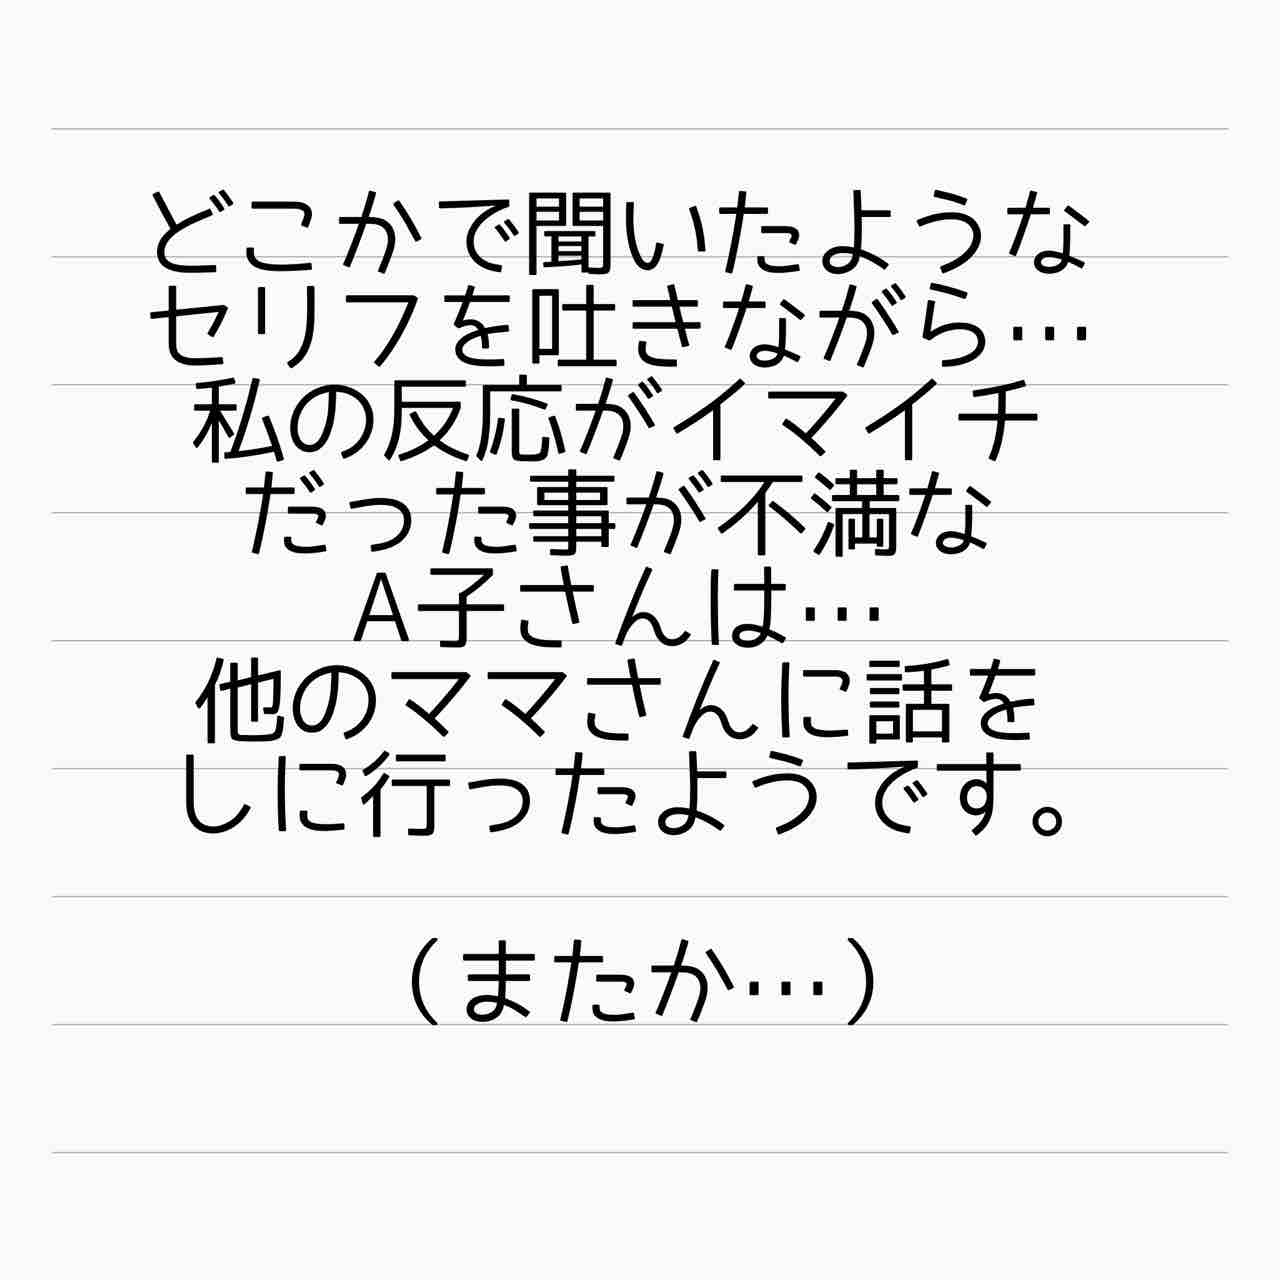 どこかで聞いたような
セリフを吐きながら…
私の反応がイマイチ
だった事が不満な
A子さんは…
他のママさんに話を
しに行ったようです。
（またか…）